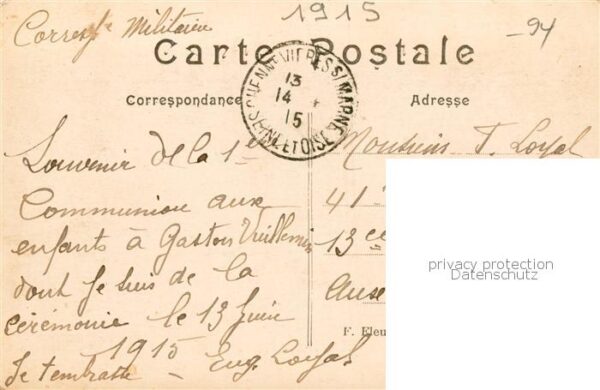 1915
Corresp. Militaire
-94
Carte Postale
CHENNEVIERES S/ MARNE
13
14
15
SEINE ET OISE
Correspondance
Adresse
Souvenir de la 1e
Communion aux
enfants à Gaston Vuillemin
dont je suis de la
cérémonie le 13 Juin
1915
Je t'embrasse - Eug. Loyal
Monsieur F. Loyal
41
13 ce
F. Fleu
privacy protection
Datenschutz